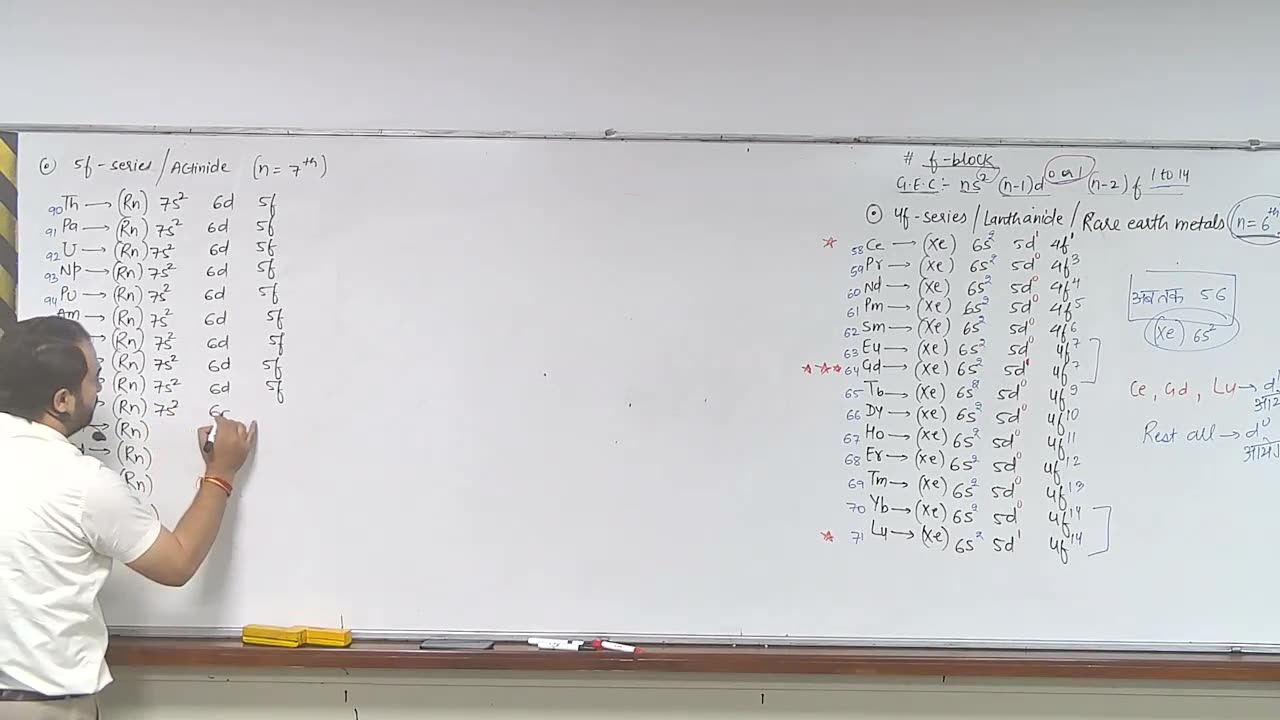 ⊙ 5f-series / Actinide (n = 7th)
90Th → (Rn) 7s² 6d 5f
91Pa → (Rn) 7s² 6d 5f
92U → (Rn) 7s² 6d 5f
93Np → (Rn) 7s² 6d 5f
94Pu → (Rn) 7s² 6d 5f
Am → (Rn) 7s² 6d 5f
(Rn) 7s² 6d 5f
(Rn) 7s² 6d 5f
(Rn) 7s² 6d 5f
(Rn) 7s²
(Rn)
(Rn)
(Rn)
# f-block
G.E.C :- ns² (n-1)d 0 or 1 (n-2)f 1 to 14
⊙ 4f-series / Lanthanide / Rare earth metals (n = 6th
☆ 58Ce → (Xe) 6s² 5d¹ 4f¹
59Pr → (Xe) 6s² 5d⁰ 4f³
60Nd → (Xe) 6s² 5d⁰ 4f⁴
61Pm → (Xe) 6s² 5d⁰ 4f⁵
62Sm → (Xe) 6s² 5d⁰ 4f⁶
63Eu → (Xe) 6s² 5d⁰ 4f⁷
☆☆☆ 64Gd → (Xe) 6s² 5d¹ 4f⁷
65Tb → (Xe) 6s² 5d⁰ 4f⁹
66Dy → (Xe) 6s² 5d⁰ 4f¹⁰
67Ho → (Xe) 6s² 5d⁰ 4f¹¹
68Er → (Xe) 6s² 5d⁰ 4f¹²
69Tm → (Xe) 6s² 5d⁰ 4f¹³
70Yb → (Xe) 6s² 5d⁰ 4f¹⁴
☆ 71Lu → (Xe) 6s² 5d¹ 4f¹⁴
अब तक 56
(Xe) 6s²
Ce, Gd, Lu → d¹
Rest all → d⁰